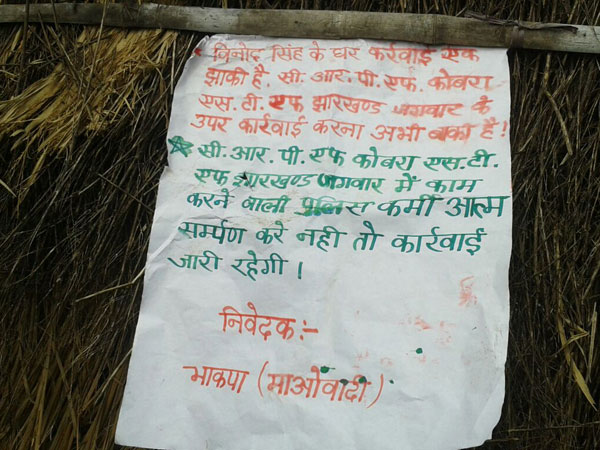 ★ विनोद सिंह के घर कर्रवाई एक
झाकी है. सी. आर. पी. एफ. कोबरा
एस. टी. एफ झारखण्ड जगवार के
उपर कार्रवाई करना अभी बाकी है!
★ सी. आर. पी. एफ कोबरा एस. टी.
एफ झारखण्ड जगवार में काम
करने वाली पुलिस कर्मी आत्म
सर्म्पण करे नही तो कार्रवाई
जारी रहेगी।
निवेदक:-
भाकपा (माओवादी)